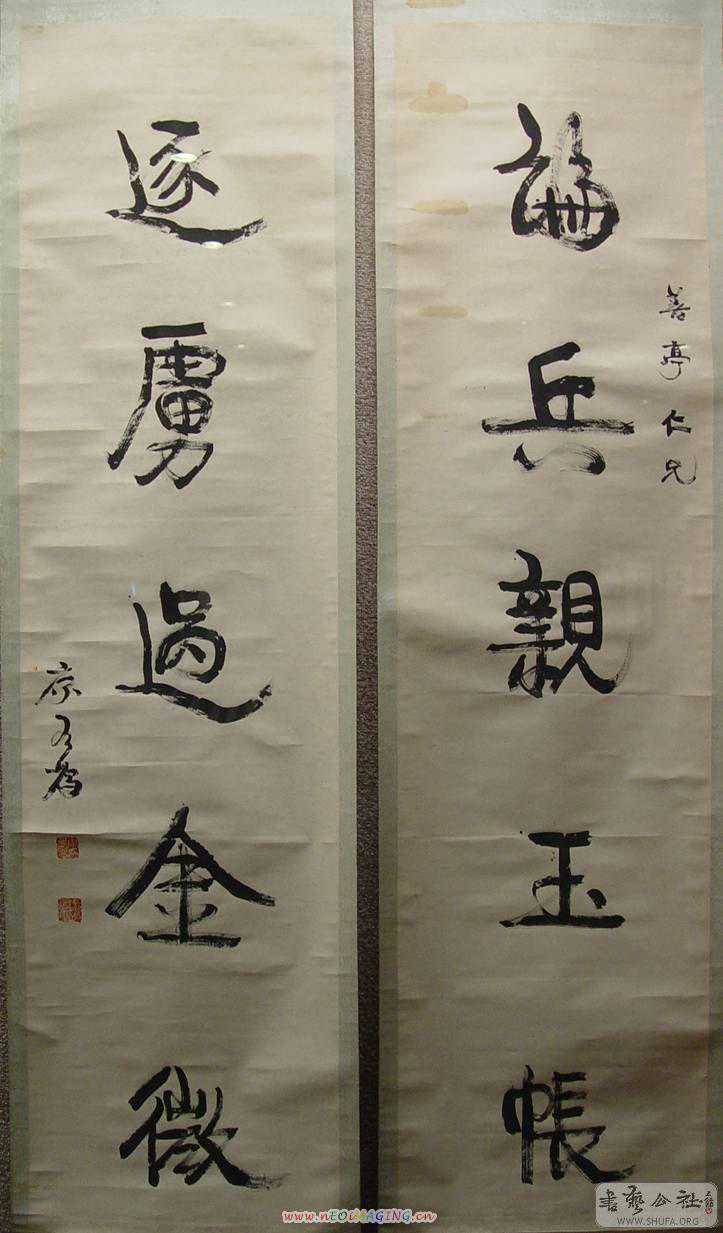 善亭仁兄
論兵親玉帳
逐虜過金微
康有為
www.nEOiMAGiNG.cn
書藝公社
WWW.SHUFA.ORG